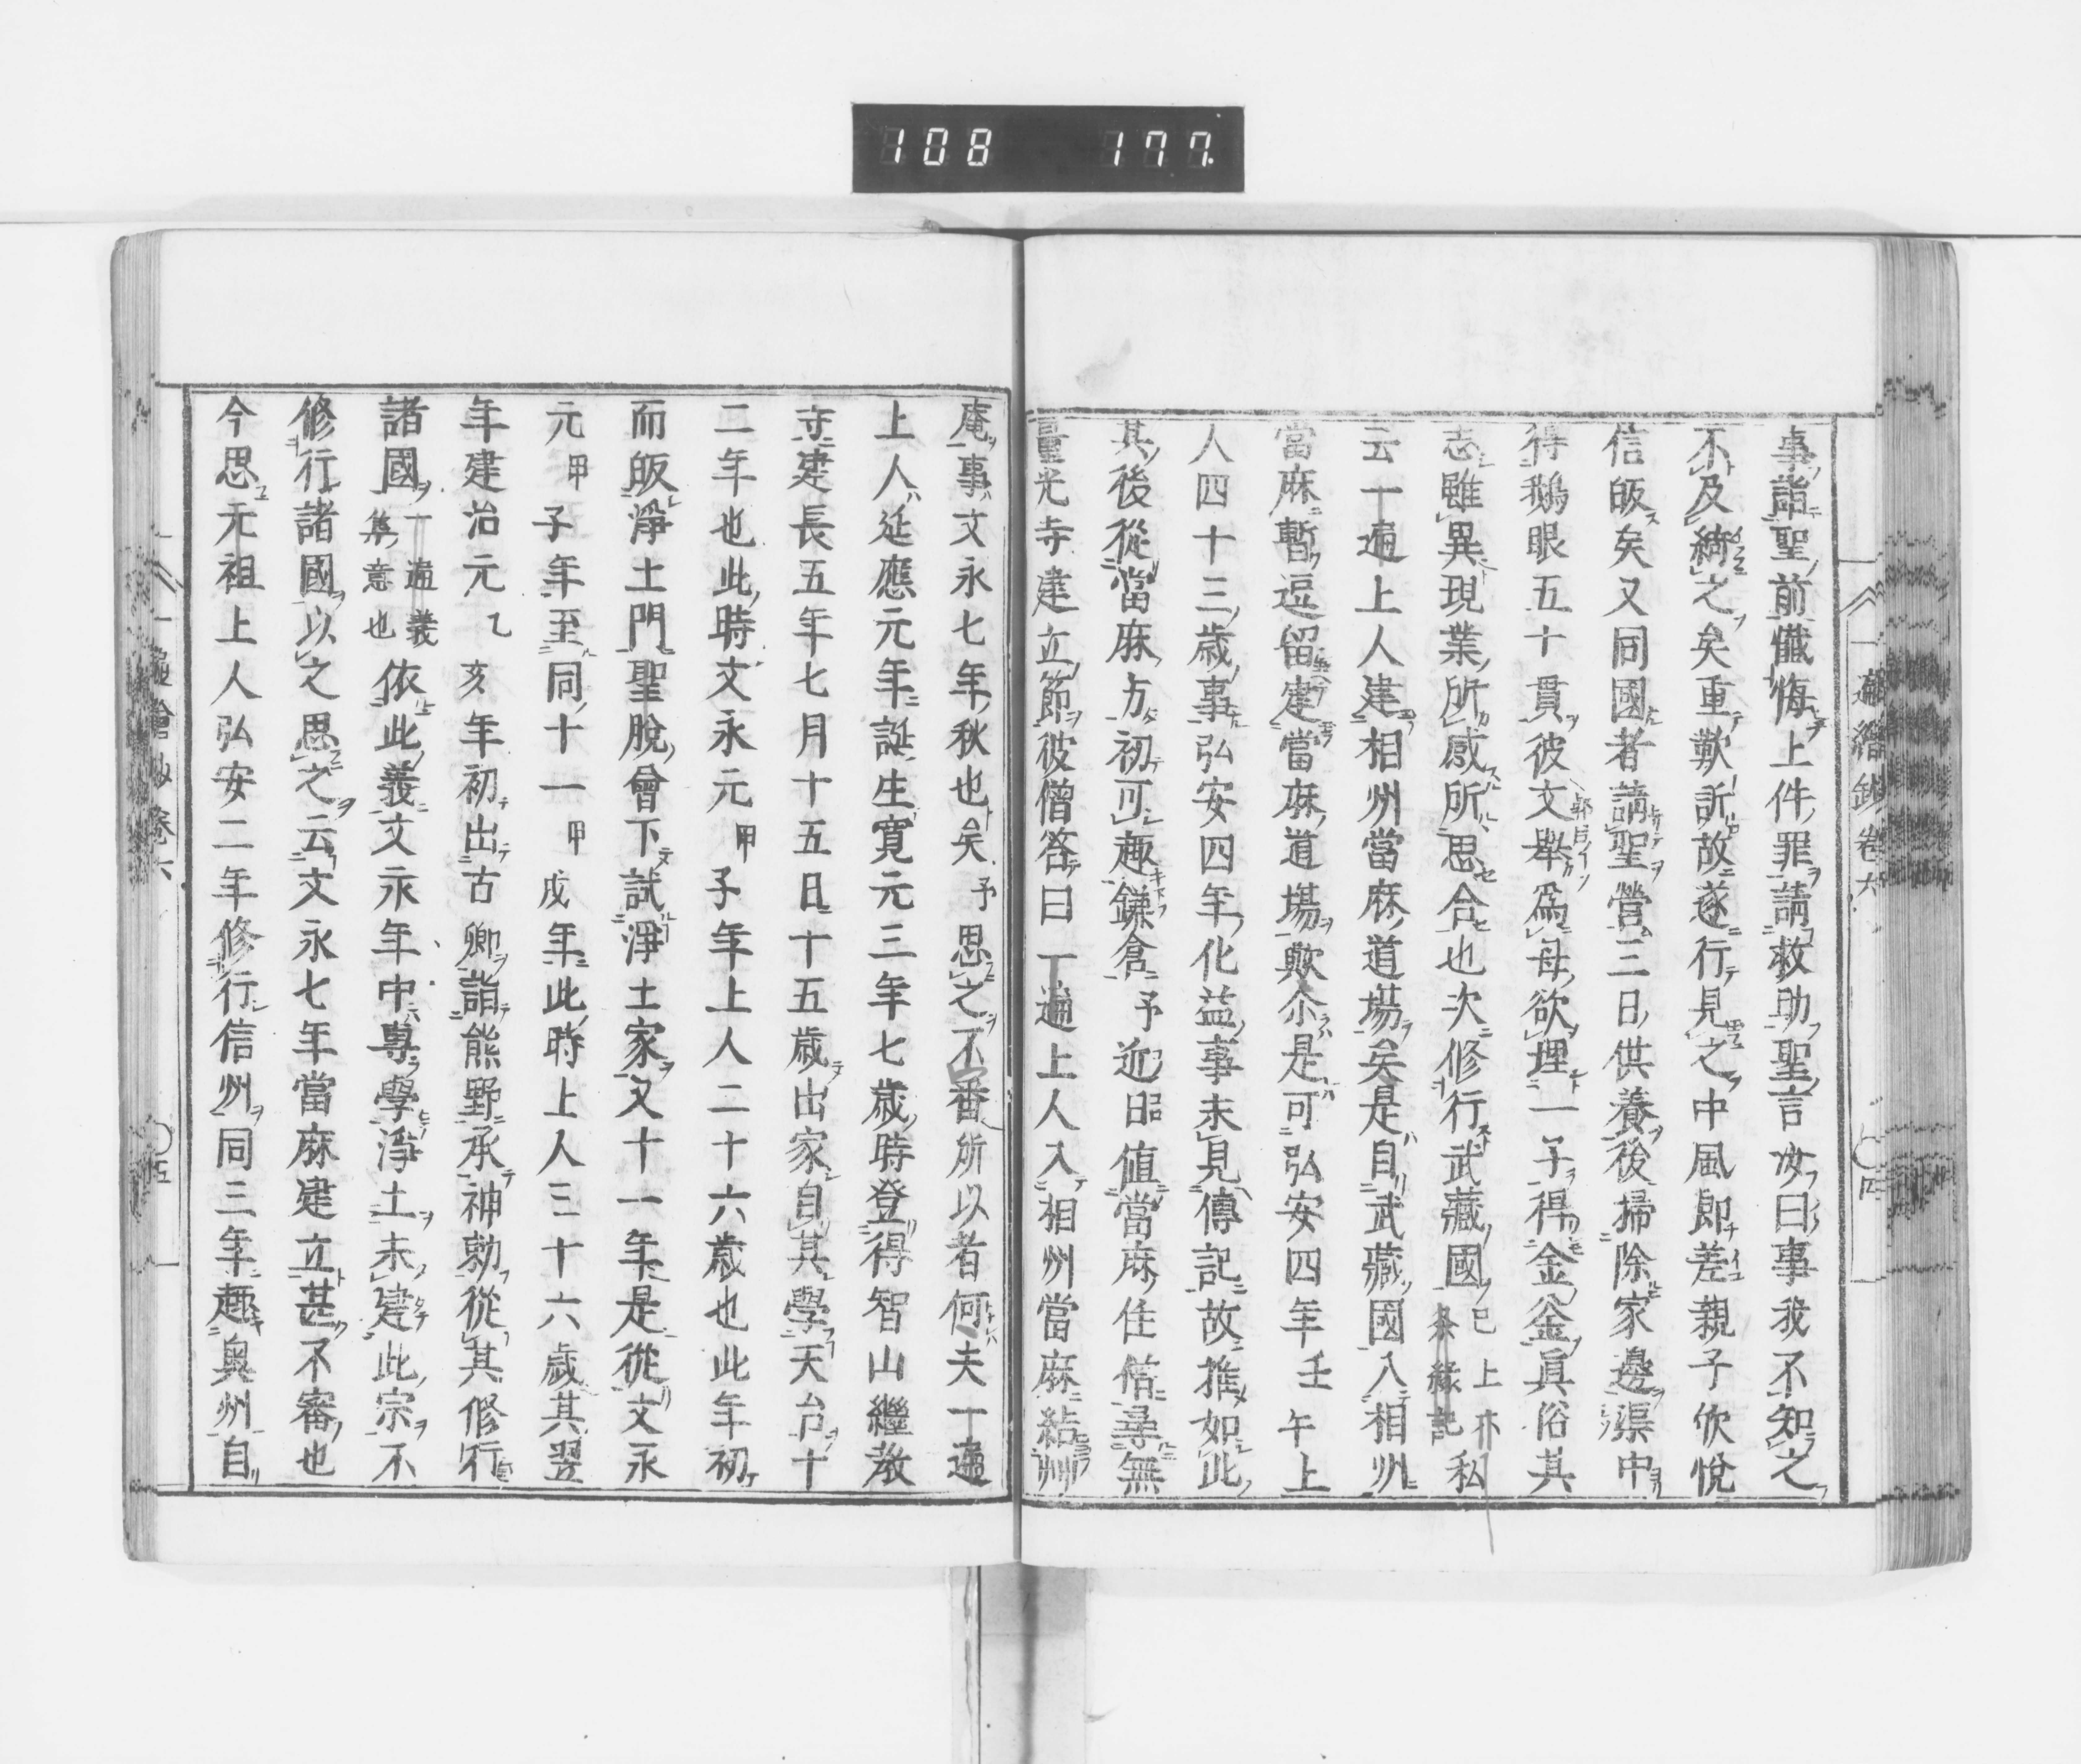 108 177
事詣聖前懺悔上件罪請救助聖言汝曰事我不知之
不及綺之矣重歎訴故遂行見之中風即差親子欣悅
信皈矣又同國者請聖營三日供養後掃除家邊渠中
得鵝眼五十貫彼文擧爲母欲埋一子得金釜眞俗其
志雖異現業所感所思合也次修行武藏國已上亦縁記私
云一遍上人建相州當麻道場矣是自武藏國入相州
當麻暫逗留建當麻道場歟尒是可弘安四年壬午上
人四十三歳事弘安四年化益事未見傳記故推如此
其後從當麻方初可趣鎌倉予近日値當麻住僧尋無
量光寺建立節彼僧答曰一遍上人入相州當麻結艸
遍繪鈔卷六 四
庵事文永七年秋也矣予思之不審所以者何夫一遍
上人延應元年誕生寛元三年七歳時登得智山繼教
寺建長五年七月十五日十五歳出家自其學天台十
二年也此時文永元甲子年上人二十六歳也此年初
而皈淨土門聖脫會下試淨土家又十一年是從文永
元甲子年至同十一甲戌年此時上人三十六歳其翌
年建治元乙亥年初出古郷詣熊野承神勅從其修行
諸國一遍義集意也依此義文永年中專學淨土未建此宗不
修行諸國以之思之云文永七年當麻建立甚不審也
今思元祖上人弘安二年修行信州同三年趣奥州自
一遍繪鈔卷六 五